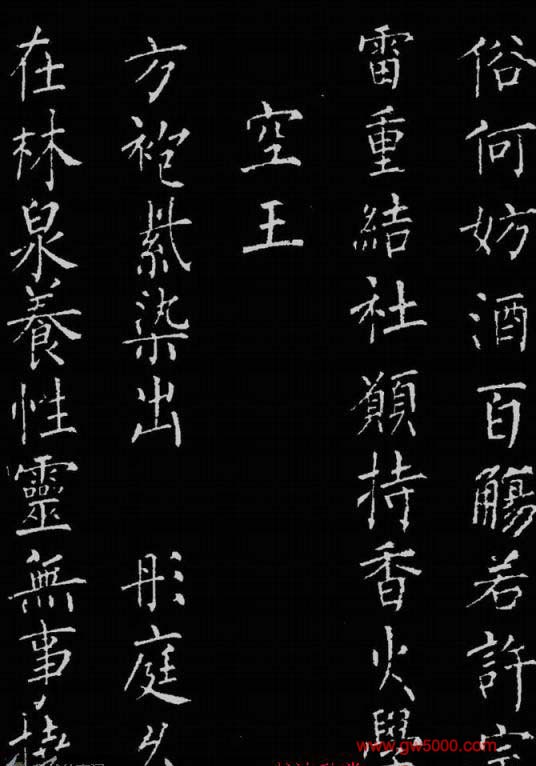 俗何妨酒百觴若許宗
雷重結社願持香火學
空王
方袍紫染出 彤庭久
在林泉養性靈無事
www.gw5000.com